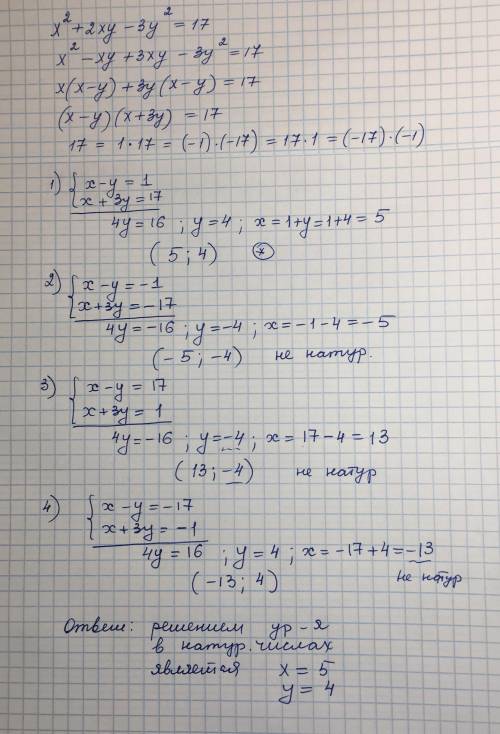 x² + 2xy - 3y² = 17
x² - xy + 3xy - 3y² = 17
x(x-y) + 3y(x-y) = 17
(x-y)(x+3y) = 17
17 = 1·17 = (-1)·(-17) = 17·1 = (-17)·(-1)
1) { x-y = 1
x + 3y = 17
4y = 16 ; y = 4 ; x = 1+y = 1+4 = 5
( 5 ; 4) *
2) { x - y = -1
x+3y = -17
4y = -16 ; y = -4 ; x = -1-4 = -5
(-5 ; -4) не натур.
3) { x - y = 17
x + 3y = 1
4y = -16 ; y = -4 ; x = 17-4 = 13
( 13 ; -4) не натур
4) { x - y = -17
x + 3y = -1
4y = 16 ; y = 4 ; x = -17+4 = -13
(-13 ; 4) не натур
Ответ: решением ур-я
в натур. числах
является x = 5
y = 4